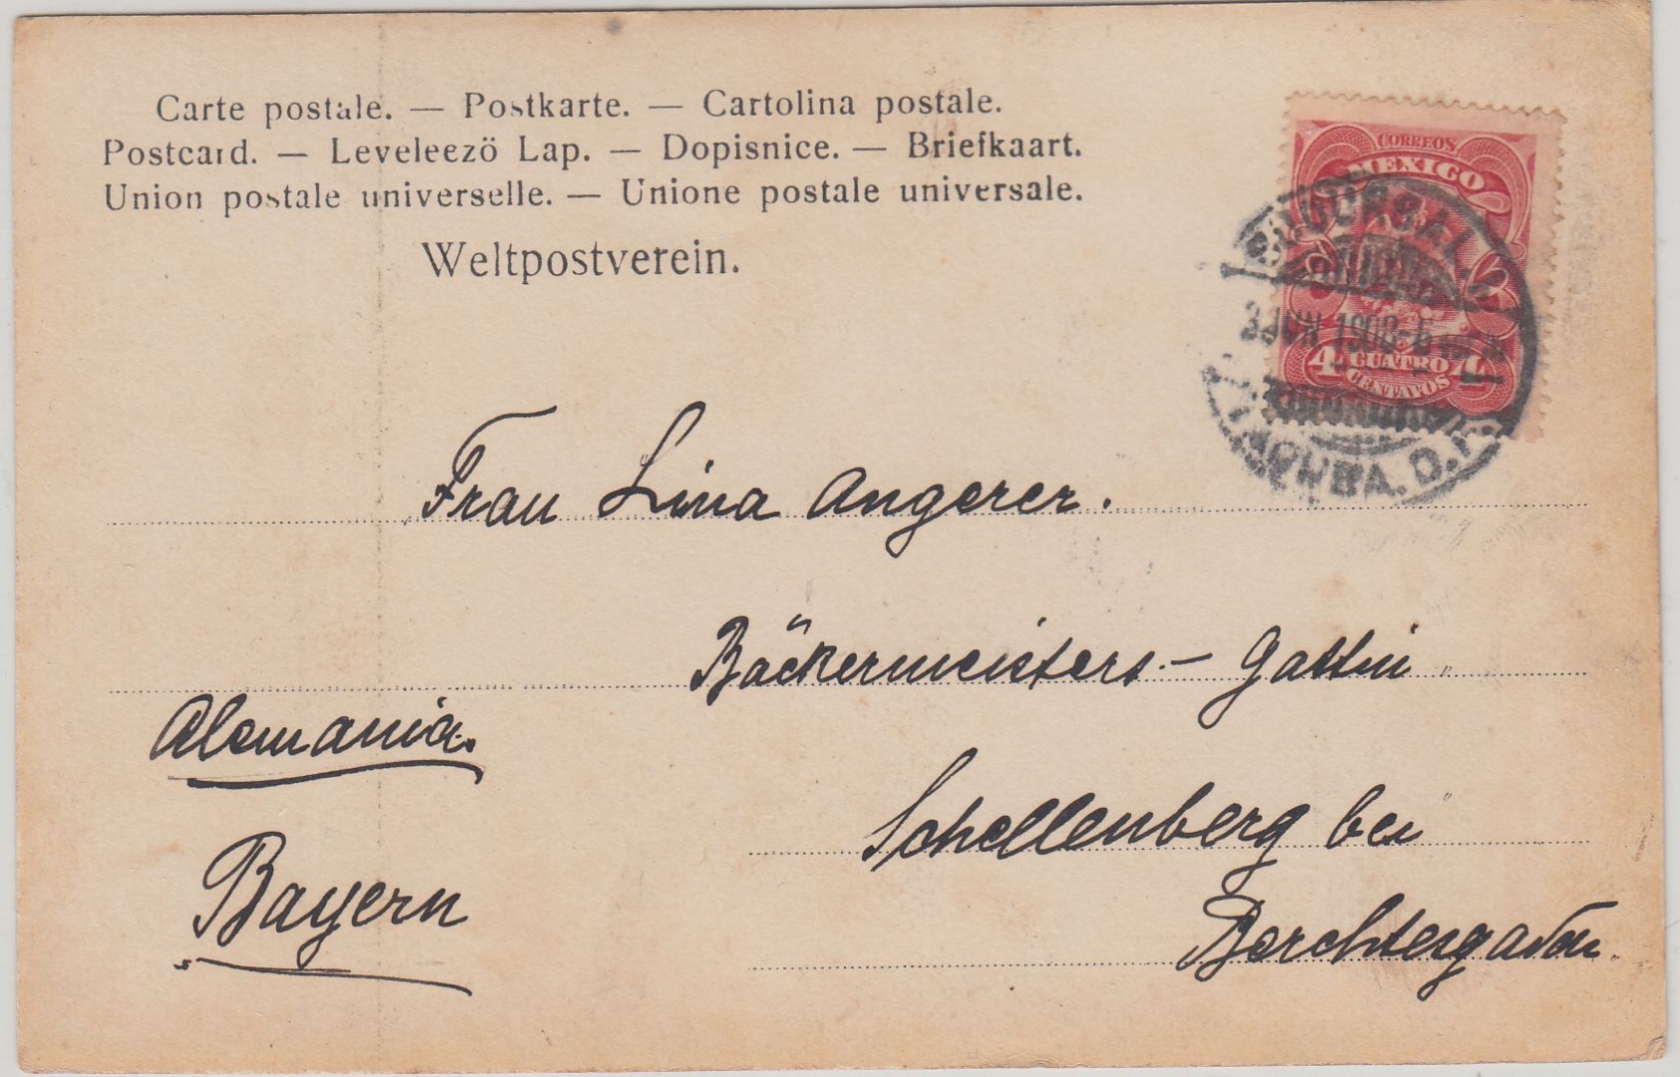 Carte postale. — Postkarte. — Cartolina postale.
Postcard. — Leveleezö Lap. — Dopisnice. — Briefkaart.
Union postale universelle. — Unione postale universale.
Weltpostverein.
CORREOS.
MEXICO
SUCURSAL
3 JUN 1902-6
4 CUATRO 4
CENTAVOS
TACUBAYA. D.F.
Frau Lina Angerer.
Bäckermeisters.- Gattin
Alemania.
Schellenberg bei
Bayern
Berchtesgaden.